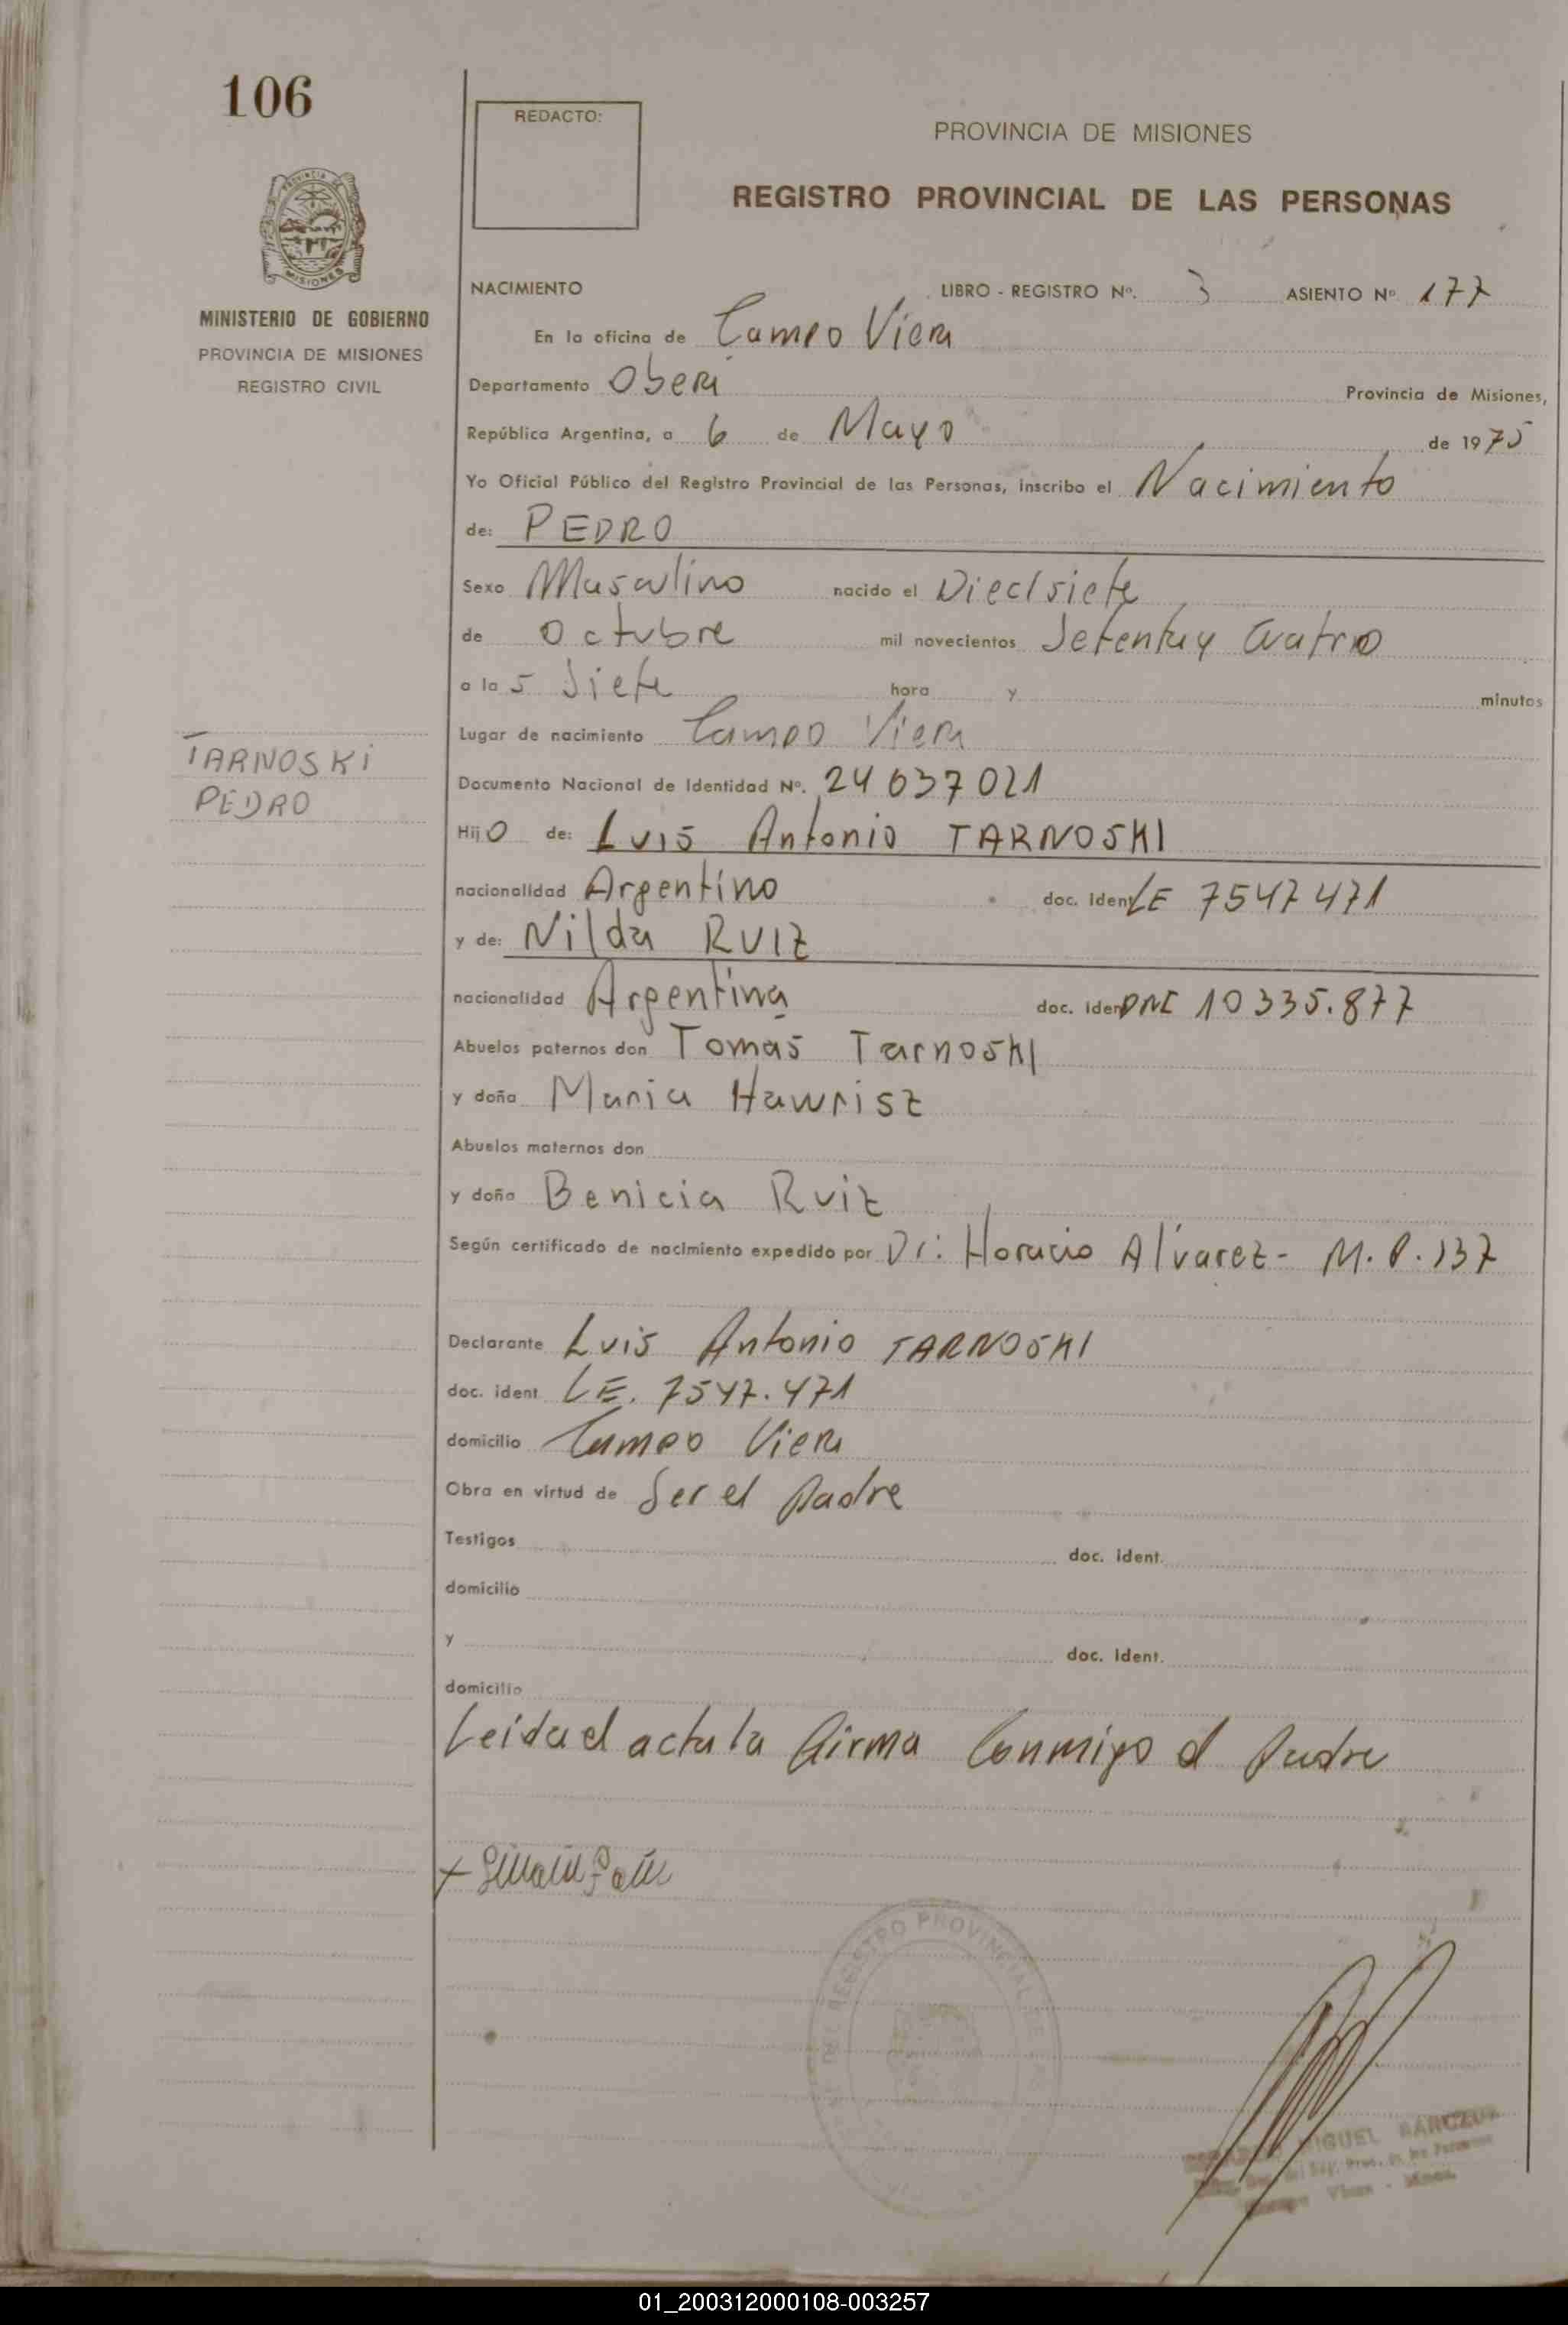 106
REDACTO:
PROVINCIA DE MISIONES
REGISTRO PROVINCIAL DE LAS PERSONAS
PROVINCIA DE
MISIONES
MINISTERIO DE GOBIERNO
PROVINCIA DE MISIONES
REGISTRO CIVIL
NACIMIENTO LIBRO - REGISTRO Nº. 3 ASIENTO Nº 177
En la oficina de Campo Viera
Departamento Obera Provincia de Misiones,
República Argentina, a 6 de Mayo de 1975
Yo Oficial Público del Registro Provincial de las Personas, inscribo el Nacimiento
de: PEDRO
Sexo Masculino nacido el Diecisiete
de Octubre mil novecientos Setentay Cuatro
a la s Siete hora y minutos
Lugar de nacimiento Campo Viera
TARNOSKi
PEDRO
Documento Nacional de Identidad Nº. 24 637 021
Hijo de: Luis Antonio TARNOSKI
nacionalidad Argentino doc. ident LE 7547 471
y de: Nilda RUIZ
nacionalidad Argentina doc. iden DNI 10 335.877
Abuelos paternos don Tomas Tarnoski
y doña Maria Hawrisz
Abuelos maternos don
y doña Benicia Ruiz
Según certificado de nacimiento expedido por Dr: Horacio Alvarez - M.P.137
Declarante Luis Antonio TARNOSKI
doc. ident. LE. 7547.471
domicilio Campo Viera
Obra en virtud de Ser el Padre
Testigos doc. ident.
domicilio
y doc. ident.
domicilio
Leida el acta la firma Conmigo el Padre
REGISTRO PROVINCIAL DE LAS
MIGUEL
01_200312000108-003257